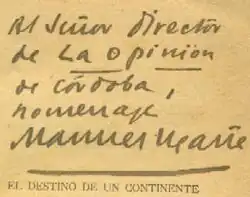 Al Señor director
de La Opinion
de Córdoba,
homenaje
Manuel Ugarte
EL DESTINO DE UN CONTINENTE